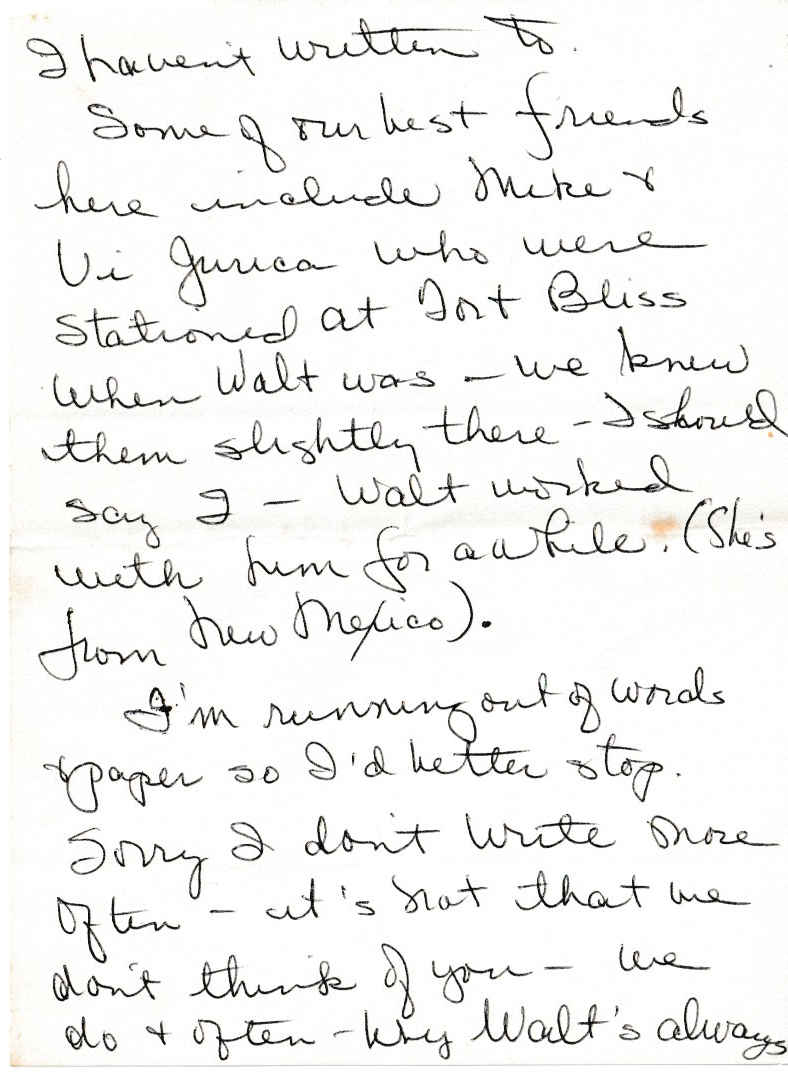 I haven't written to.
Some of our best friends
here include Mike &
Vi Jurica who were
stationed at Fort Bliss
when Walt was – we knew
them slightly there – I should
say I – Walt worked
with him for awhile. (She's
from New Mexico).
I'm running out of words
& paper so I'd better stop.
Sorry I don't write more
often – it's not that we
don't think of you – we
do & often – why Walt's always